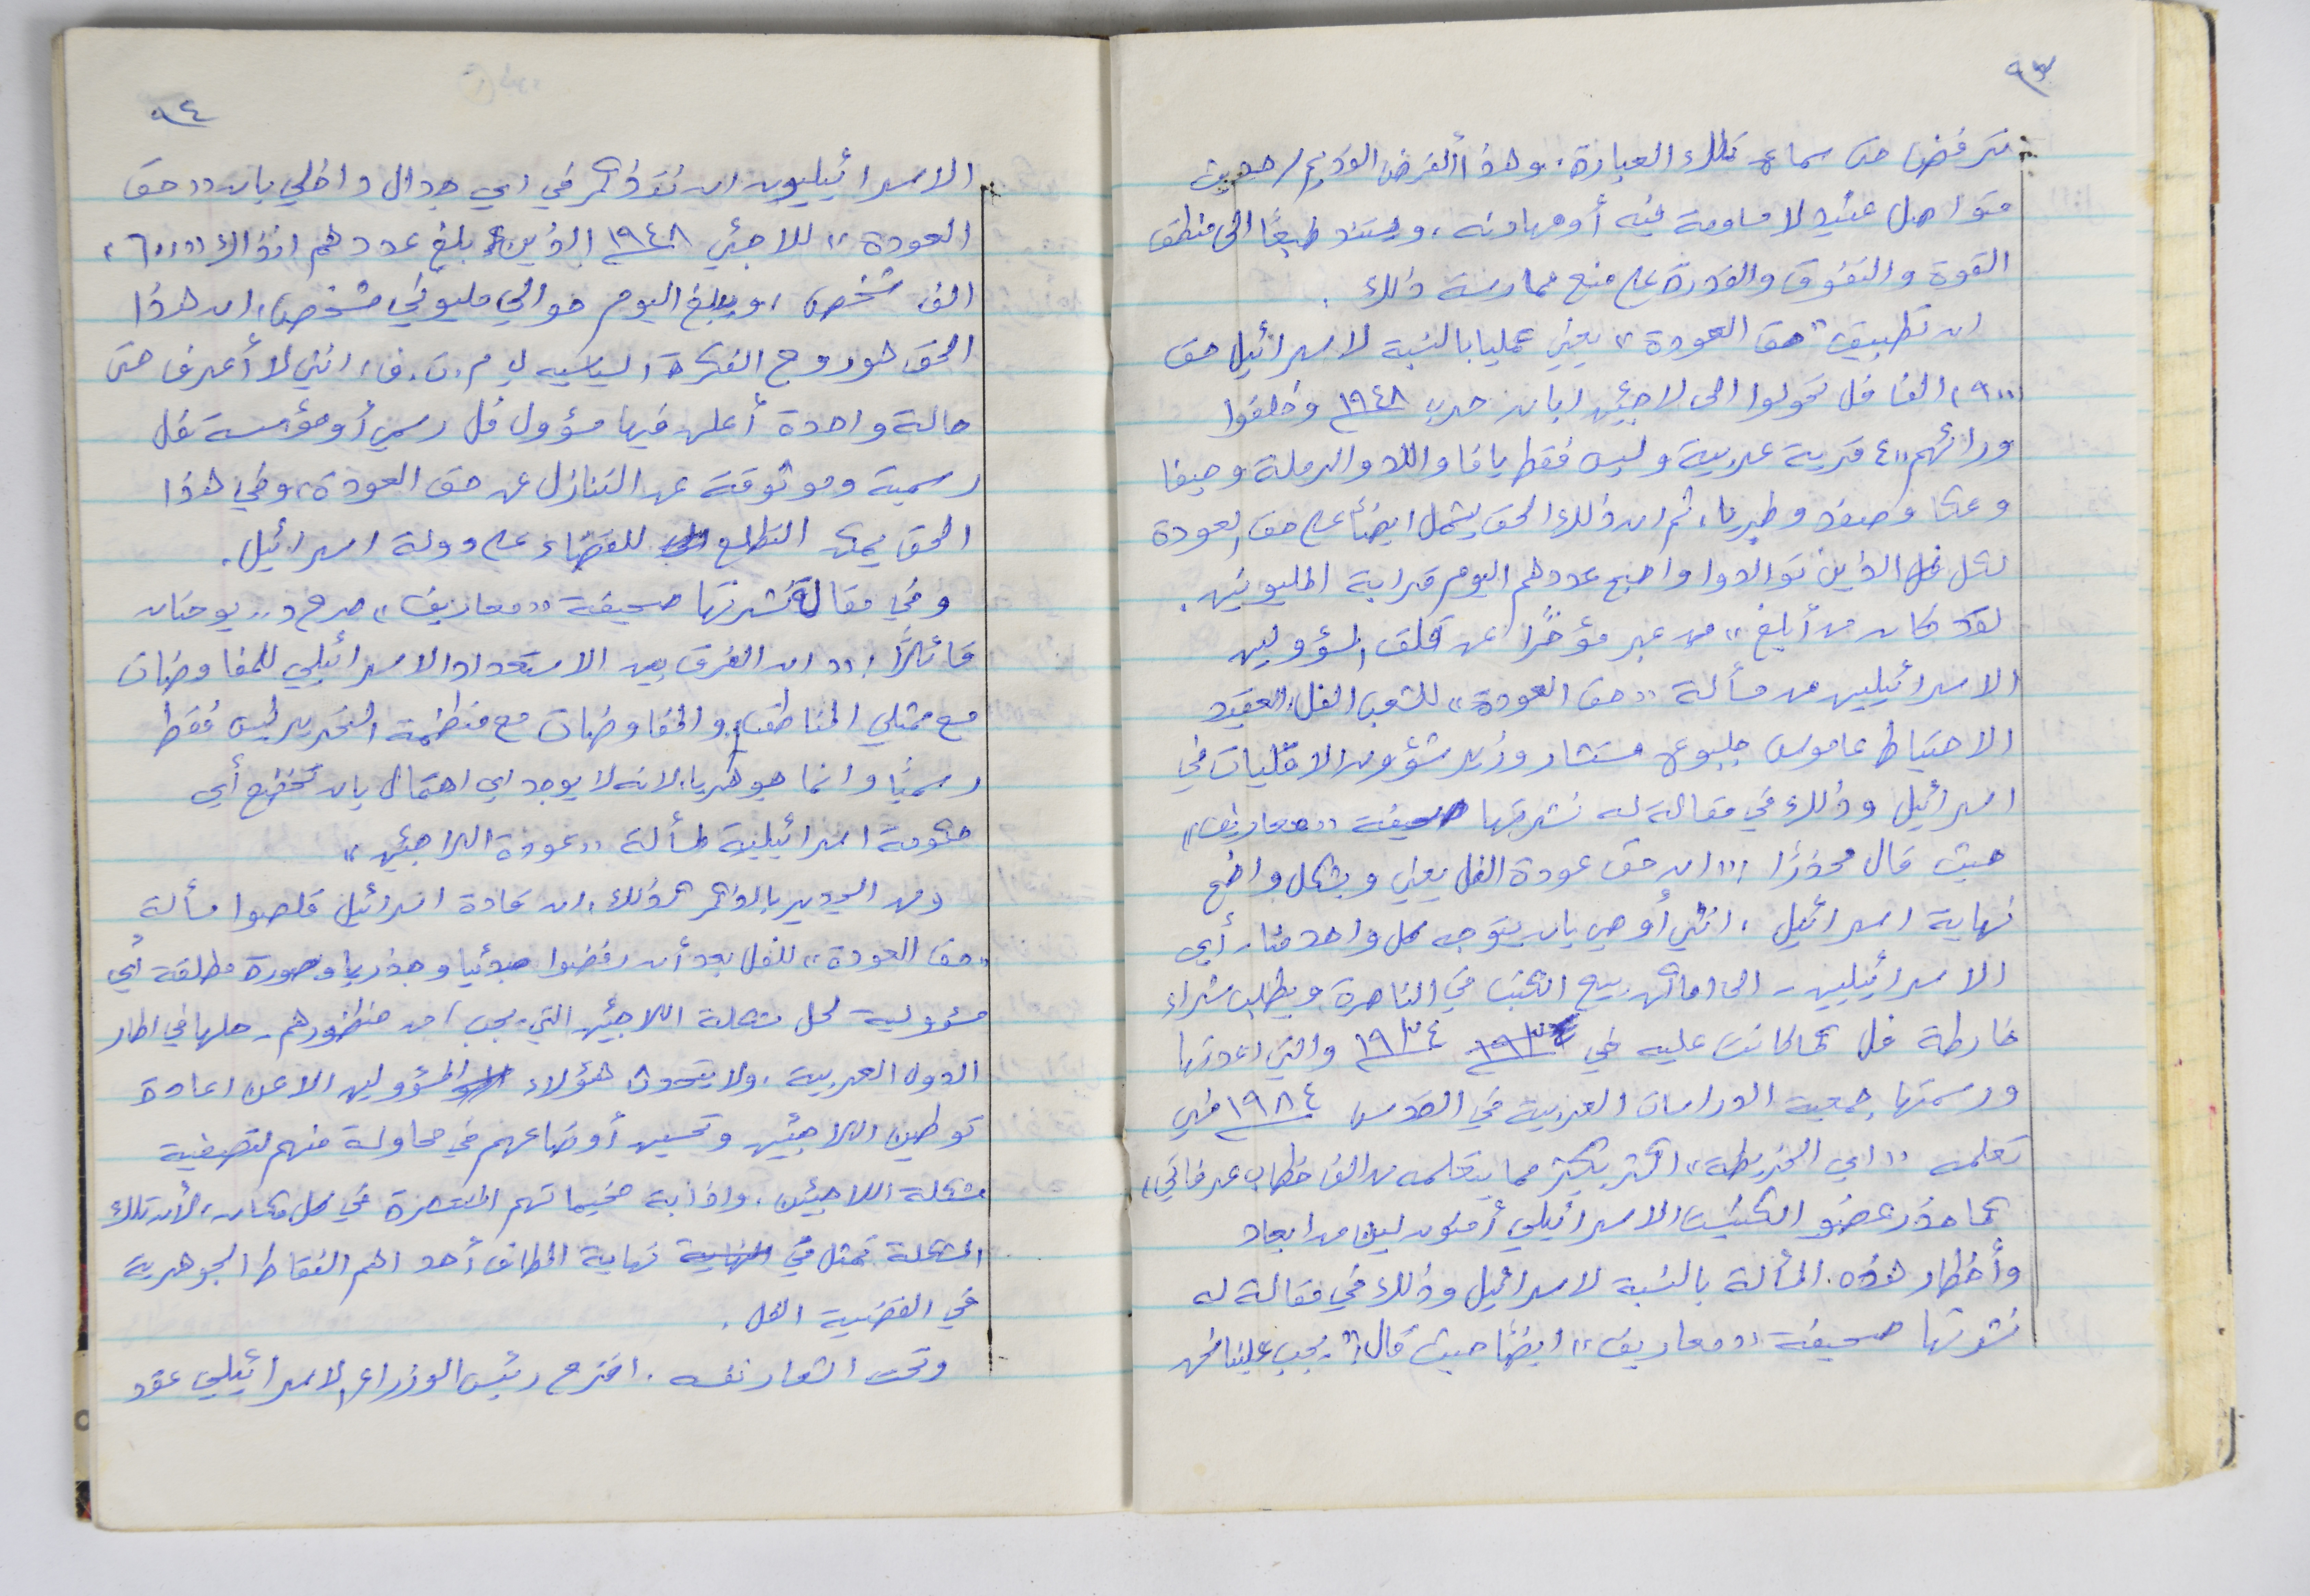 ٩٣
ترفض حتى سماع تلك العبارة، وهذا الفرض القديم/حديث
متواصل عنيد لا مساومة فيه أو مهادنه، ويستند طبعًا الى منطق
القوة والتفوق والقدرة على منع ممارسة ذلك.
ان تطبيق "حق العودة" يعني عمليا بالنسبة لاسرائيل حق
"٩٠٠" الف فل تحولوا الى لاجئين ابان حرب ١٩٤٨ وخلفوا
ورائهم ٤٠٠ قرية عربية وليس فقط يافا واللد والرملة وحيفا
وعكا وصفد وطبريا، ثم ان ذلك الحق يشمل ايضًا على حق العودة
لكل فل الذين توالدوا واصبح عددهم اليوم قرابة المليونين.
لقد كان من أبلغ" من عبر مؤخرًا عن قلق المسؤولين
الاسرائيليين من مسألة "حق العودة" للشعب الفل، العقيد
الاحتياط عاموس جلبوع مستشار وزير شؤون الاقليات في
اسرائيل وذلك في مقالة له نشرتها صحيفة "معاريف"
حيث قال محذرًا: "ان حق عودة الفل يعني وبشكل واضح
نهاية اسرائيل، انني أوصي بان يتوجه كل واحد منا - أي
الاسرائيليين - الى اماكن بيع الكتب في الناصرة ويطلب شراء
خارطة فل كما كانت عليه في ١٩٣٤ والتي اعدتها
ورسمتها جمعية الدراسات العربية في القدس ١٩٨٤ فهي
تعلمه "اي الخريطة" اكثر بكثير مما يتعلمه من الف خطاب عرفاتي"
كما حذر عضو الكنيست الاسرائيلي أمنون لين من ابعاد
وأخطار هذه المسألة بالنسبة لاسرائيل وذلك في مقالة له
نشرتها صحيفة "معاريف" ايضًا حيث قال: "يجب علينا نحن
٩٤
الاسرائيليون ان نتذكر في اي جدال داخلي بان "حق
العودة" للاجئي ١٩٤٨ الذين بلغ عددهم انذاك "٦٠٠"
الف شخص، ويبلغ اليوم حوالي مليوني شخص، ان هذا
الحق هو روح الفكرة السياسيه لـ م.ت.ف، انني لا أعرف حتى
حالة واحدة أعلن فيها مسؤول فل رسمي أو مؤسسة فل
رسمية وموثوقة عن التنازل عن حق العودة، وفي هذا
الحق يكمن التطلع للقضاء على دولة اسرائيل.
وفي مقالة نشرتها صحيفة "معاريف" صرح د. يوحنان
قائلًا: "ان الفرق بين الاستعداد الاسرائيلي للمفاوضات
مع ممثلي المناطق، والمفاوضات مع منظمة التحرير ليس فقط
رسميًا وانما جوهريا، لانه لا يوجد اي احتمال بان تخضع أي
حكومة اسرائيلية لمسألة "عودة اللاجئين"
ومن الجدير بالذكر كذلك، ان قادة اسرائيل قلصوا مسألة
"حق العودة" للفل بعد أن رفضوا مبدئيا وجذريا وصورة مطلقة أي
مسؤولية لحل مشكلة اللاجئين التي يجب / من منظورهم - حلها في اطار
الدول العربية، ولا يتحدث هؤلاء المسؤولين الا عن اعادة
توطين اللاجئين وتحسين أوضاعهم في محاولة منهم لتصفية
مشكلة اللاجئين، واذابة مخيماتهم المنتشرة في كل مكان، لأن تلك
المشكلة تمثل في نهاية المطاف أحد اهم النقاط الجوهرية
في القضية الفل.
وتحت الشعار نفسه، اقترح رئيس الوزراء الاسرائيلي عقد